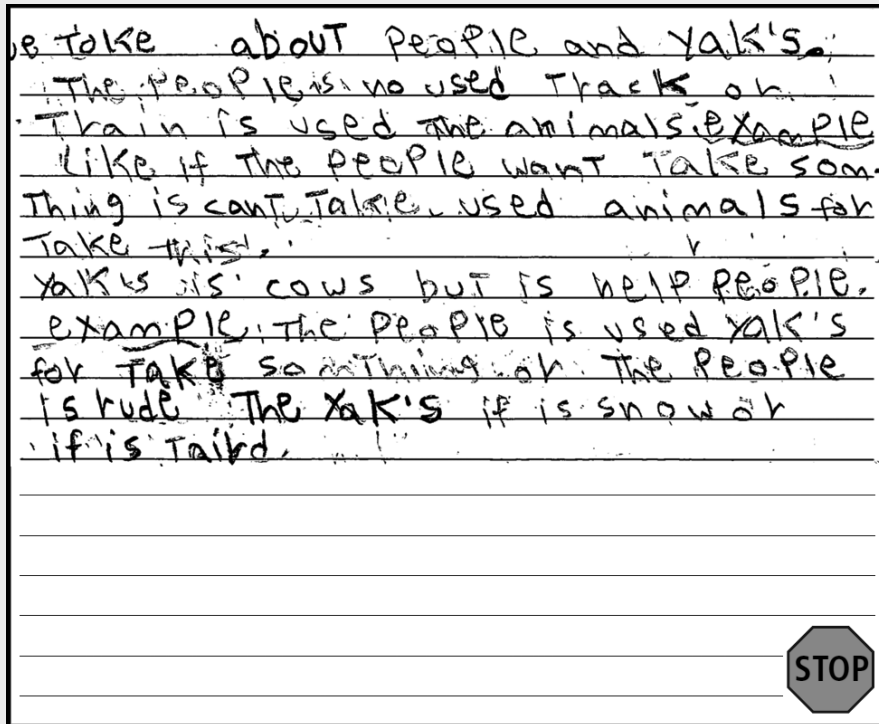 e Take about People and Yak's.
The People is no used Track or
Train is used The animals. example
Like if The People want Take som
Thing is cant Take. used animals for
Take This.
Yak's is cows but is help People.
example: The People is used Yak's
for Take somThing or The People
is rude The Yak's if is snow or
if is Taird.
STOP